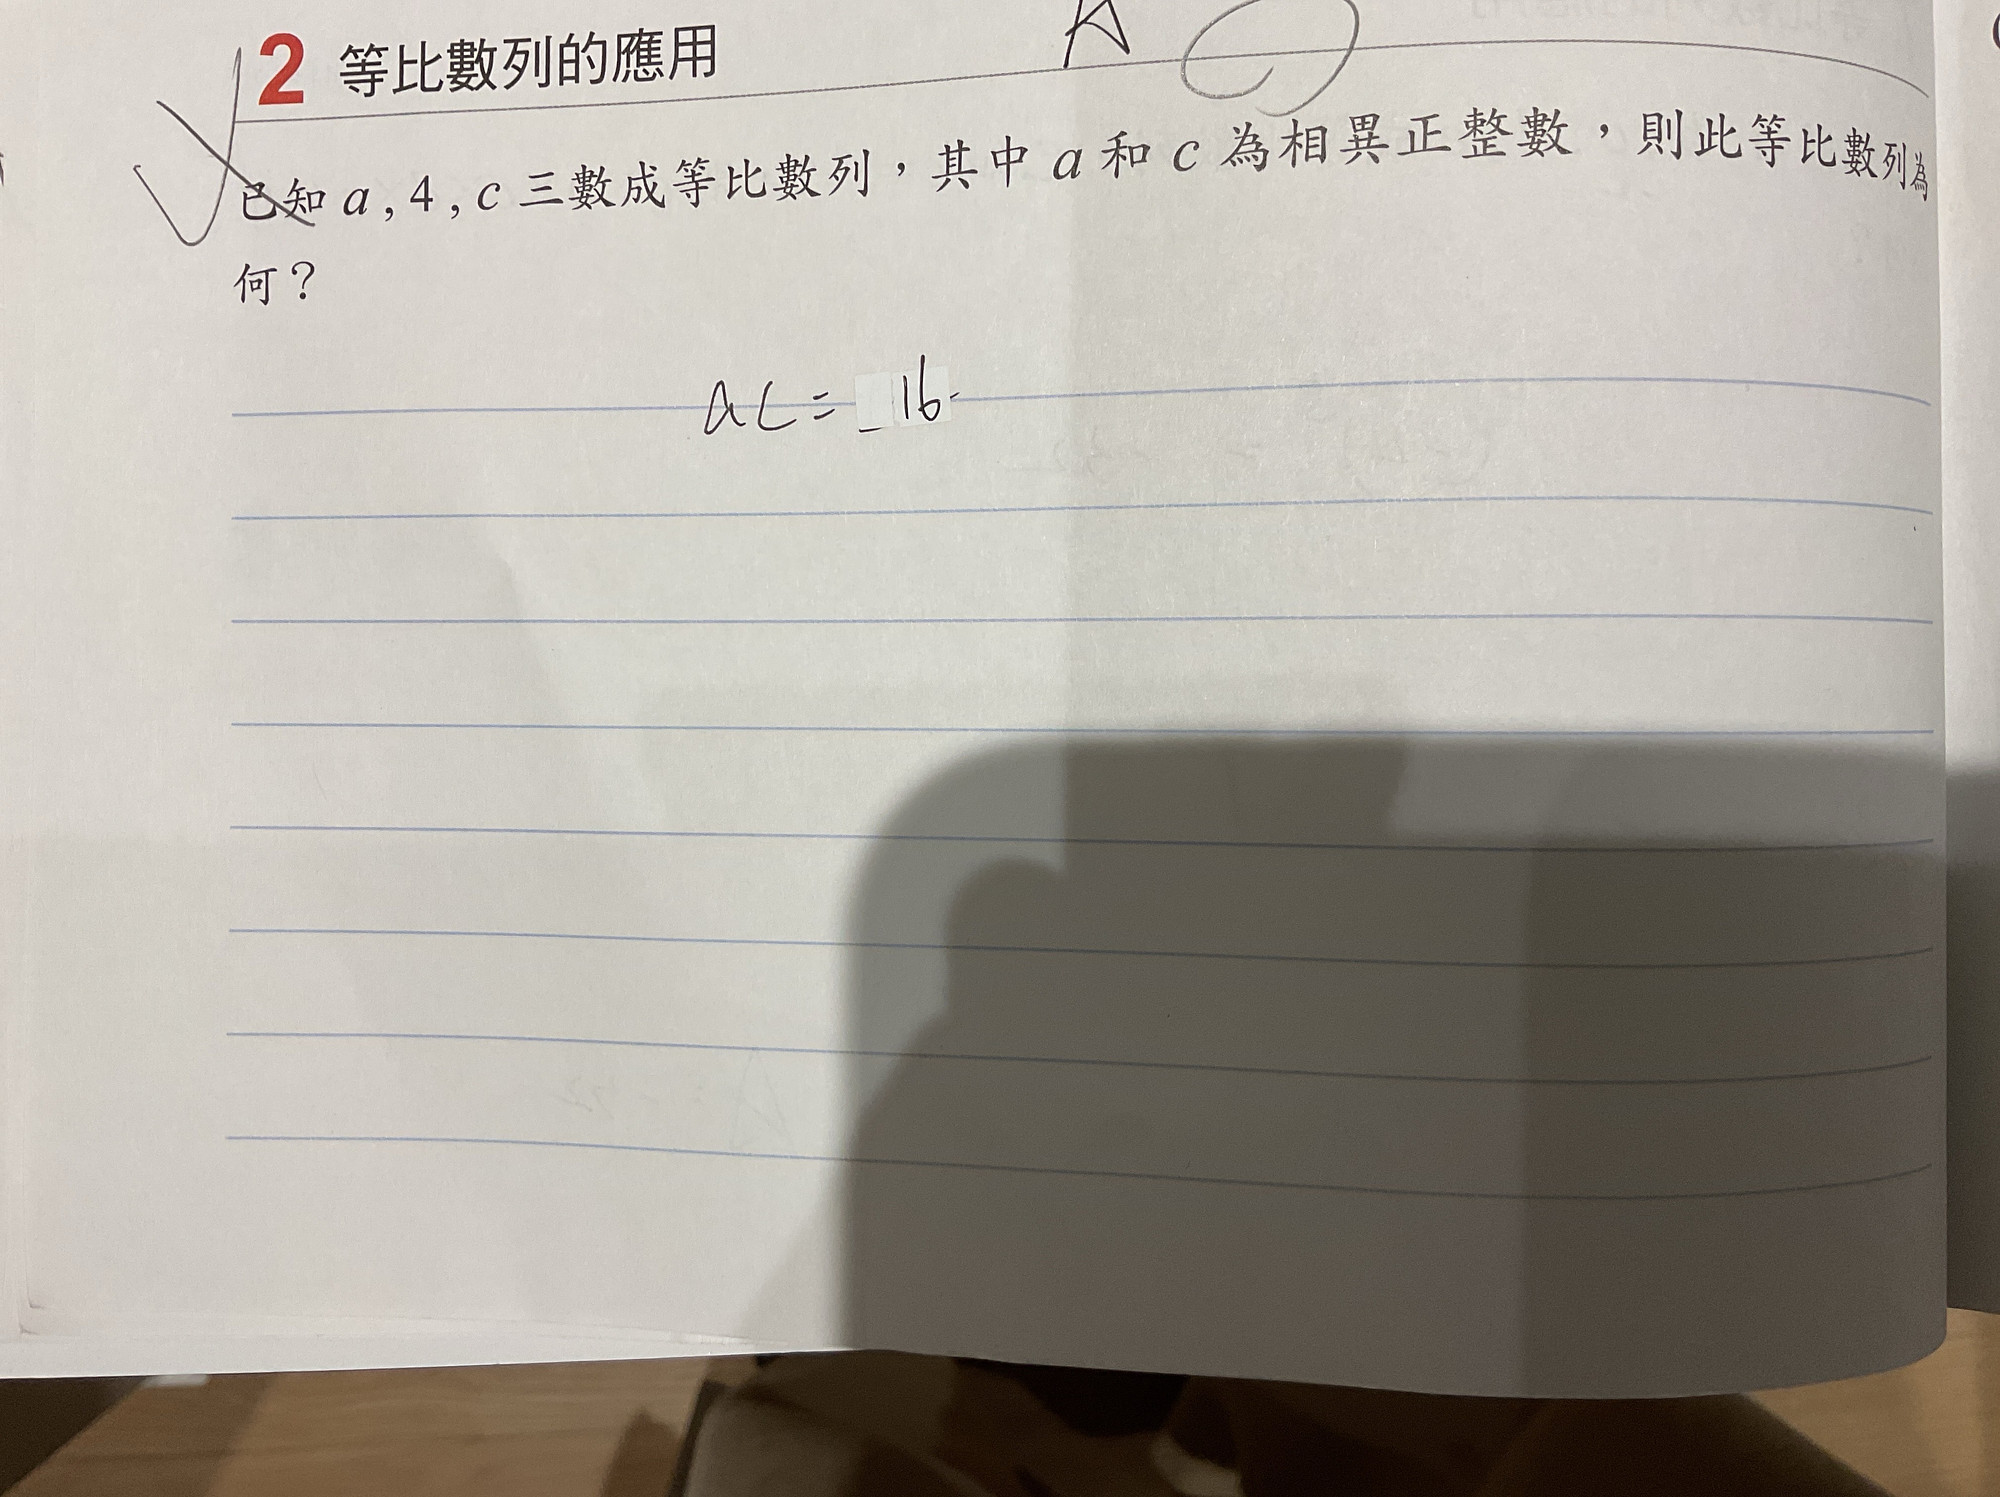 A
2 等比數列的應用
已知 a , 4 , c 三數成等比數列，其中 a 和 c 為相異正整數，則此等比數列為
何？
ac = 16